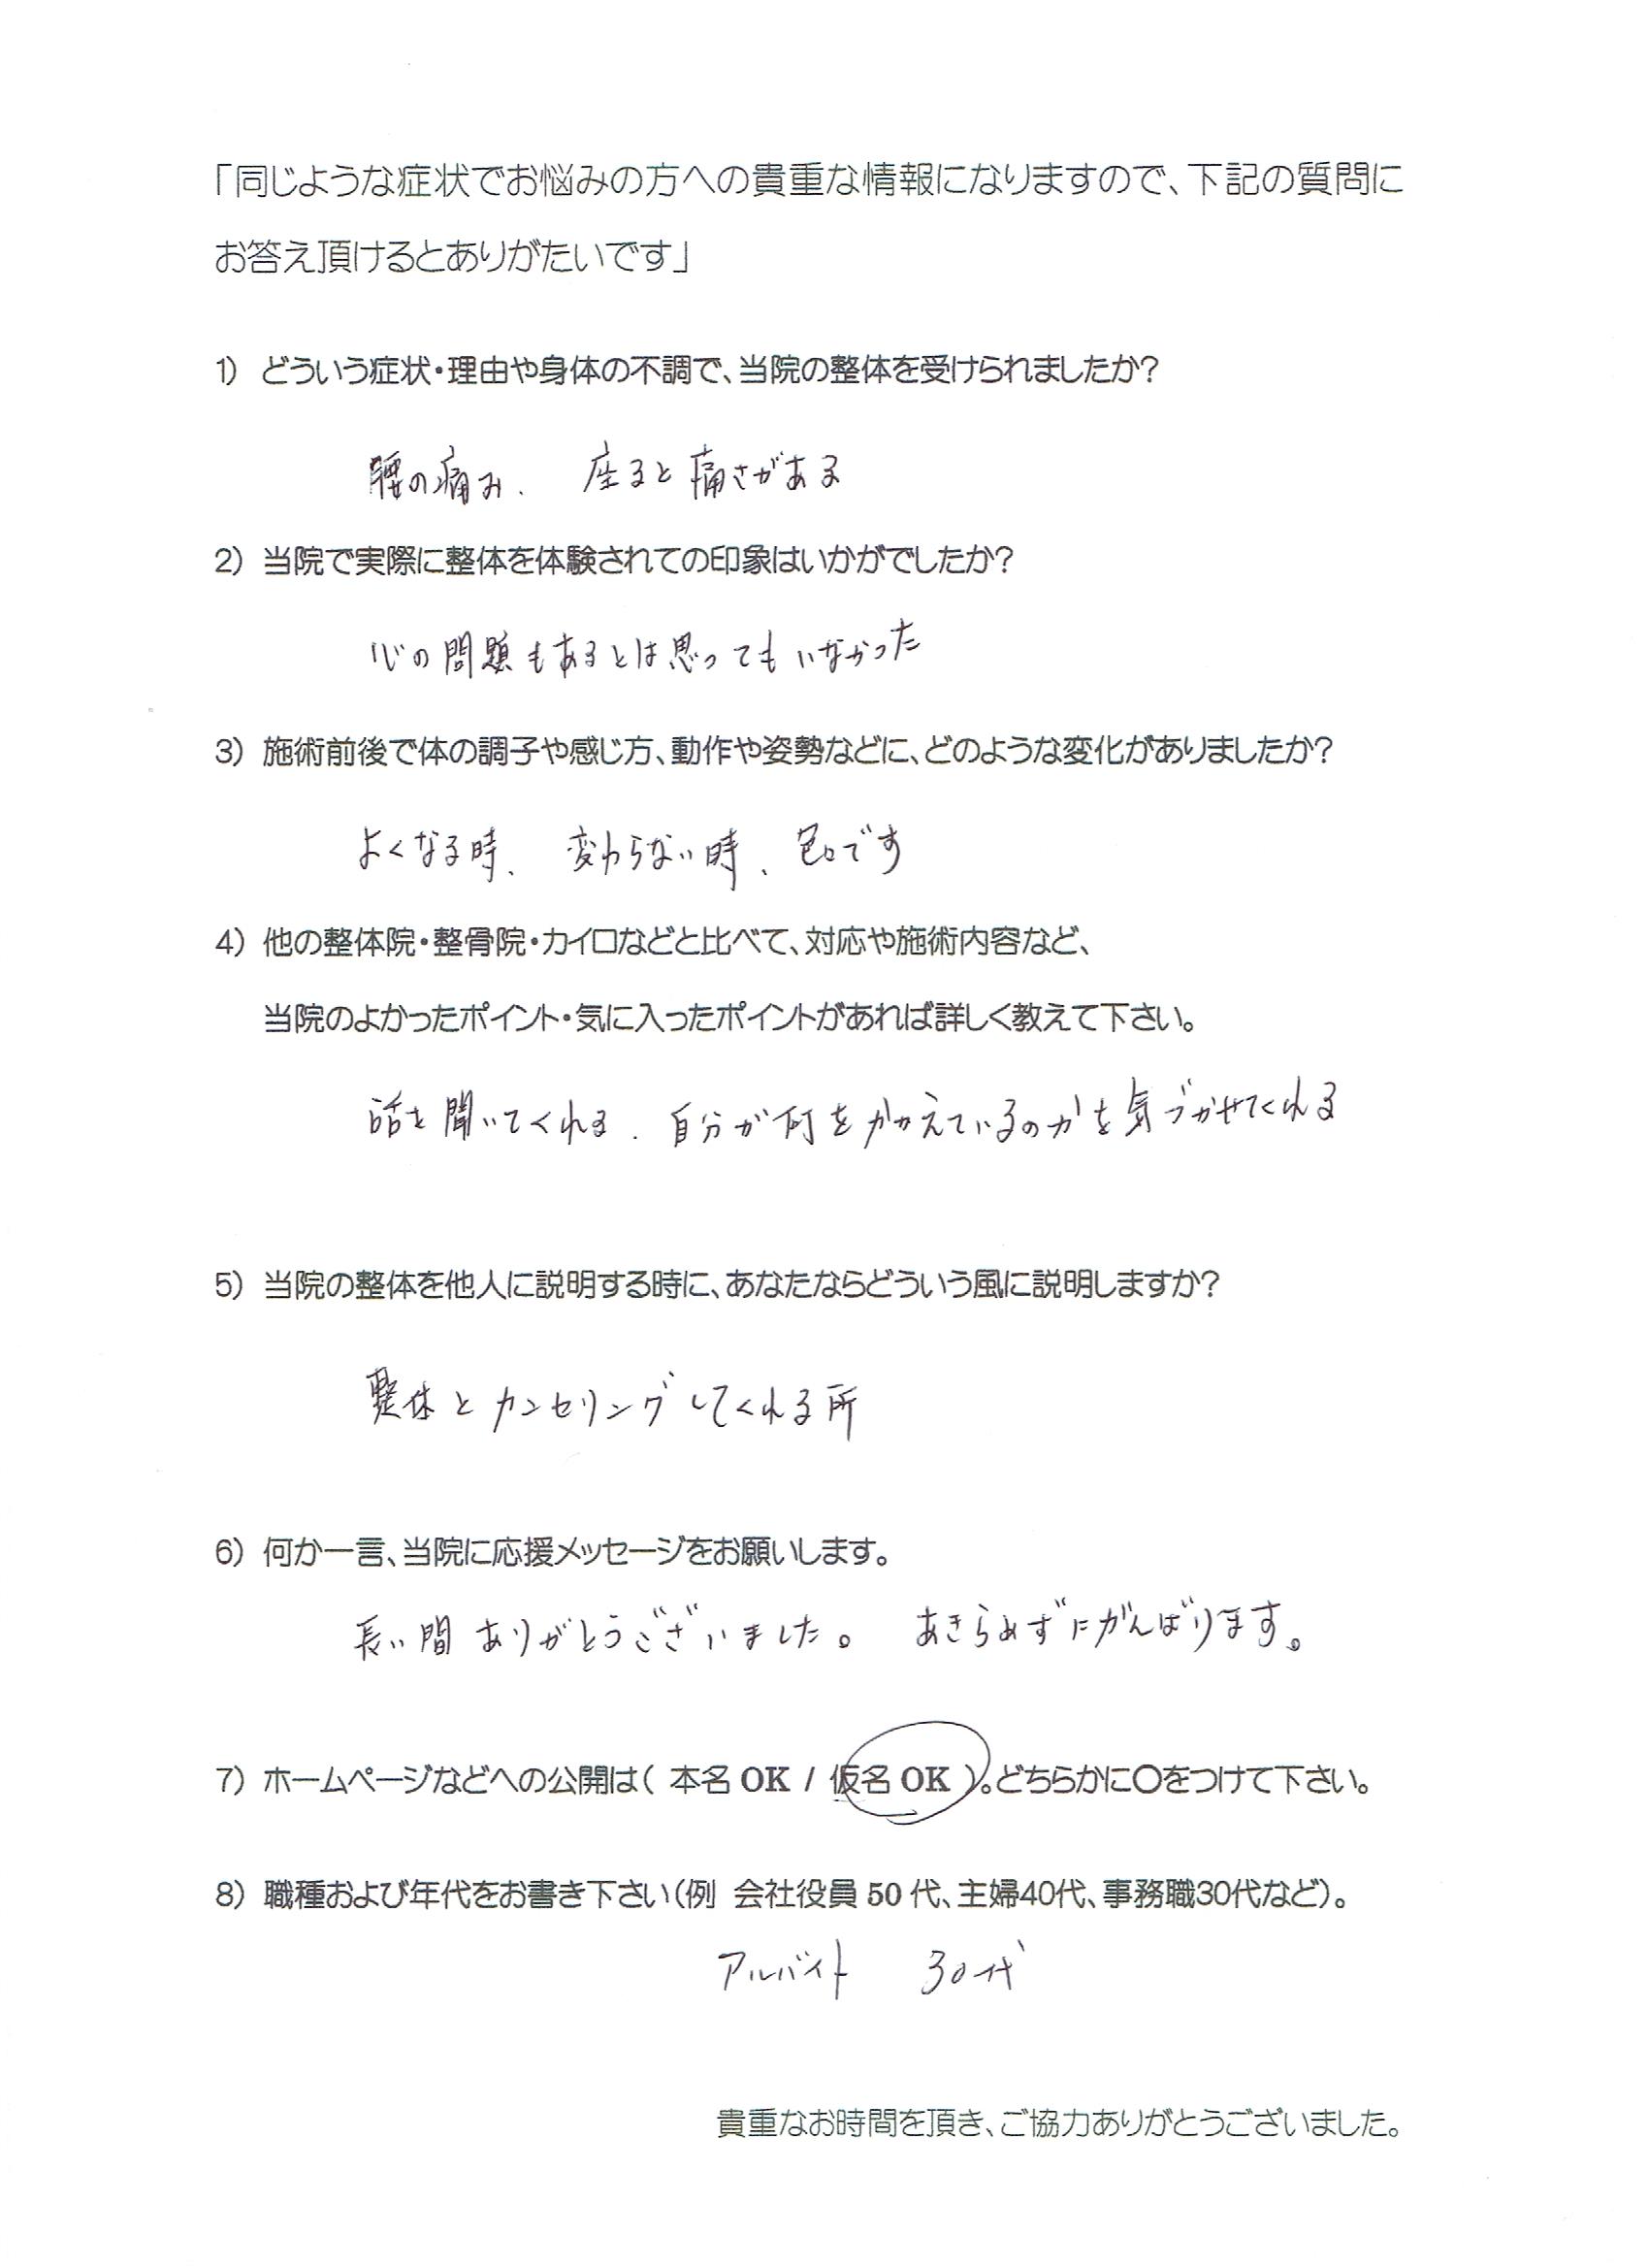 「同じような症状でお悩みの方への貴重な情報になりますので、下記の質問に
お答え頂けるとありがたいです」
1) どういう症状・理由や身体の不調で、当院の整体を受けられましたか?
腰の痛み、 座ると痛さがある
2) 当院で実際に整体を体験されての印象はいかがでしたか?
心の問題もあるとは思ってもいなかった
3) 施術前後で体の調子や感じ方、動作や姿勢などに、どのような変化がありましたか?
よくなる時、 変わらない時、色々です
4) 他の整体院・整骨院・カイロなどと比べて、対応や施術内容など、
当院のよかったポイント・気に入ったポイントがあれば詳しく教えて下さい。
話を聞いてくれる、自分が何をかかえているのかを気づかせてくれる
5) 当院の整体を他人に説明する時に、あなたならどういう風に説明しますか?
整体とカンセリングしてくれる所
6) 何か一言、当院に応援メッセージをお願いします。
長い間ありがとうございました。 あきらめずにがんばります。
7) ホームページなどへの公開は( 本名 OK / 仮名 OK )。どちらかに〇をつけて下さい。
8) 職種および年代をお書き下さい(例 会社役員 50 代、主婦40代、事務職30代など)。
アルバイト 30代
貴重なお時間を頂き、ご協力ありがとうございました。